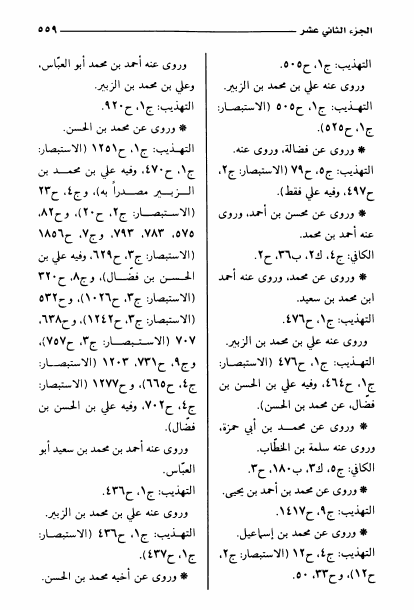 الجزء الثاني عشر
٥٥٩
التهذيب: ج١، ح٥٠٥.
وروى عنه علي بن محمد بن الزبير.
التهذيب: ج١، ح٥٠٥ (الاستبصار:
ج١، ح٥٢٥).
* وروى عن فضالة، وروى عنه.
التهذيب: ج٥، ح٧٩ (الاستبصار: ج٢،
ح٤٩٧، وفيه علي فقط).
* وروى عن محسن بن أحمد، وروى
عنه أحمد بن محمد.
الكافي: ج٤، ك٢، ب٣٦، ح٢.
* وروى عن محمد، وروى عنه أحمد
ابن محمد بن سعيد.
التهذيب: ج١، ح٤٧٦.
وروى عنه علي بن محمد بن الزبير.
التهذيب: ج١، ح٤٧٦ (الاستبصار:
ج١، ح٤٦٤، وفيه علي بن الحسن بن
فضّال، عن محمد بن الحسن).
* وروى عن محمد بن أبي حمزة،
وروى عنه سلمة بن الخطّاب.
الكافي: ج٥، ك٣، ب١٨٠، ح٣.
* وروى عن محمد بن أحمد بن يحيى.
التهذيب: ج٩، ح١٤١٧.
* وروى عن محمد بن إسماعيل.
التهذيب: ج٤، ح١٢ (الاستبصار: ج٢،
ح١٢)، وح٣٣، ٥٠.
وروى عنه أحمد بن محمد أبو العبّاس،
وعلي بن محمد بن الزبير.
التهذيب: ج١، ح٩٢٠.
* وروى عن محمد بن الحسن.
التهذيب: ج١، ح١٢٥١ (الاستبصار:
ج١، ح٤٧٠، وفيه علي بن محمد بن
الزبير مصدراً به)، وج٤، ح٢٣
(الاستبصار: ج٢، ح٢٠)، وح٨٢،
٥٧٥، ٧٨٣، ٧٩٣، وج٧، ح١٨٥٦
(الاستبصار: ج٣، ح٦٢٩، وفيه علي بن
الحسن بن فضّال)، وج٨، ح٣٢٠
(الاستبصار: ج٣، ح١٠٢٦)، وح٥٣٢
(الاستبصار: ج٣، ح١٢٤٢)، وح٦٣٨،
٧٠٧ (الاستبصار: ج٣، ح٧٥٧)،
وج٩، ح٧٣١، ١٢٠٣ (الاستبصار:
ج٤، ح٦٦٥)، وح١٢٧٧ (الاستبصار:
ج٤، ح٧٠٢، وفيه علي بن الحسن بن
فضّال).
وروى عنه أحمد بن محمد بن سعيد أبو
العبّاس.
التهذيب: ج١، ح٤٣٦.
وروى عنه علي بن محمد بن الزبير.
التهذيب: ج١، ح٤٣٦ (الاستبصار:
ج١، ح٤٣٧).
* وروى عن أخيه محمد بن الحسن.